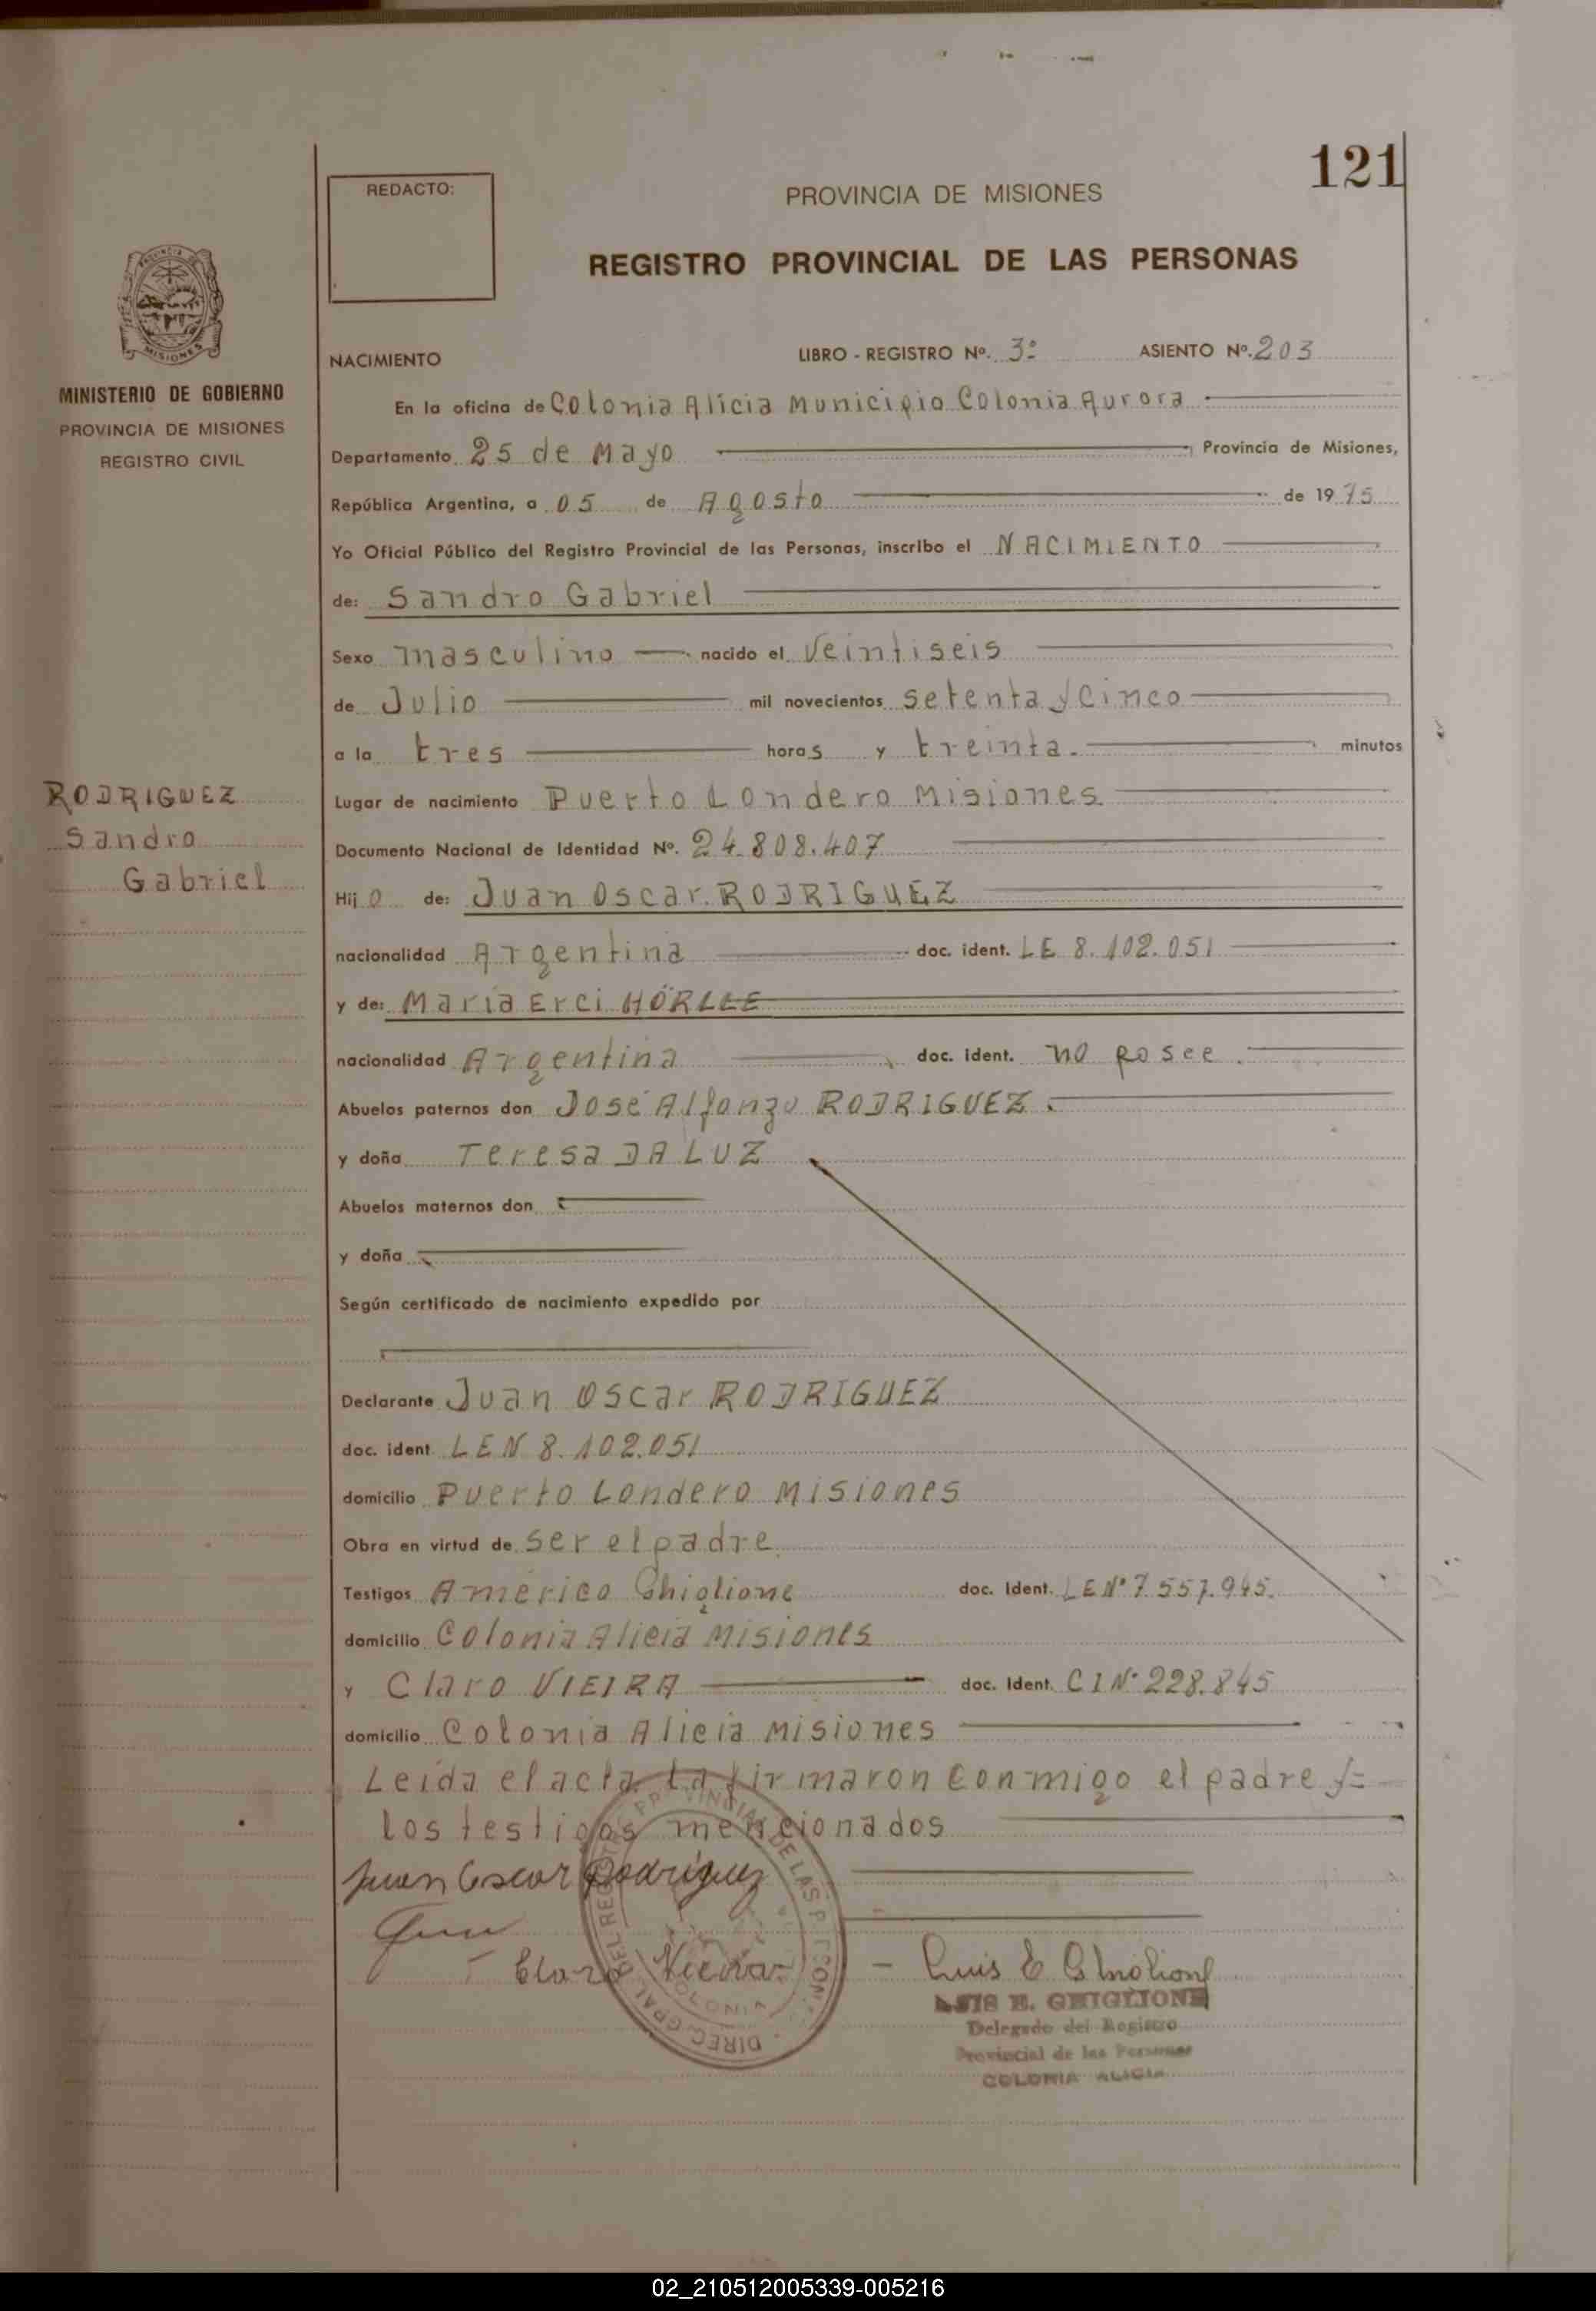 121
REDACTO:
PROVINCIA DE MISIONES
REGISTRO PROVINCIAL DE LAS PERSONAS
MISIONES
MINISTERIO DE GOBIERNO
PROVINCIA DE MISIONES
REGISTRO CIVIL
NACIMIENTO LIBRO - REGISTRO Nº. 3º ASIENTO Nº. 203
En la oficina de Colonia Alicia Municipio Colonia Aurora
Departamento 25 de Mayo Provincia de Misiones,
República Argentina, a 05 de Agosto de 1975
Yo Oficial Público del Registro Provincial de las Personas, inscribo el NACIMIENTO
de: Sandro Gabriel
Sexo masculino nacido el Veintiseis
de Julio mil novecientos setenta y Cinco
a la tres horas y treinta. minutos
RODRIGUEZ
Sandro
Gabriel
Lugar de nacimiento Puerto Londero Misiones.
Documento Nacional de Identidad Nº. 24.808.407
Hijo de: Juan Oscar RODRIGUEZ
nacionalidad Argentina doc. ident. LE 8.102.051
y de: María Erci HÖRLLE
nacionalidad Argentina doc. ident. no posee.
Abuelos paternos don José Alfonzo RODRIGUEZ.
y doña Teresa DA LUZ
Abuelos maternos don
y doña
Según certificado de nacimiento expedido por
Declarante Juan Oscar RODRIGUEZ
doc. ident LEN 8.102.051
domicilio Puerto Londero Misiones
Obra en virtud de ser el padre
Testigos Américo Ghiglione doc. Ident. LE Nº 7.557.945.
domicilio Colonia Alicia Misiones
y Claro VIEIRA doc. Ident. CI Nº 228.845
domicilio Colonia Alicia Misiones
Leída el acta La firmaron conmigo el padre y=
los testigos mencionados
Juan Oscar Rodriguez
Claro Vieira - Luis E Ghiglione
LUIS E. GHIGLIONE
Delegado del Registro
Provincial de las Personas
COLONIA ALICIA
02_210512005339-005216